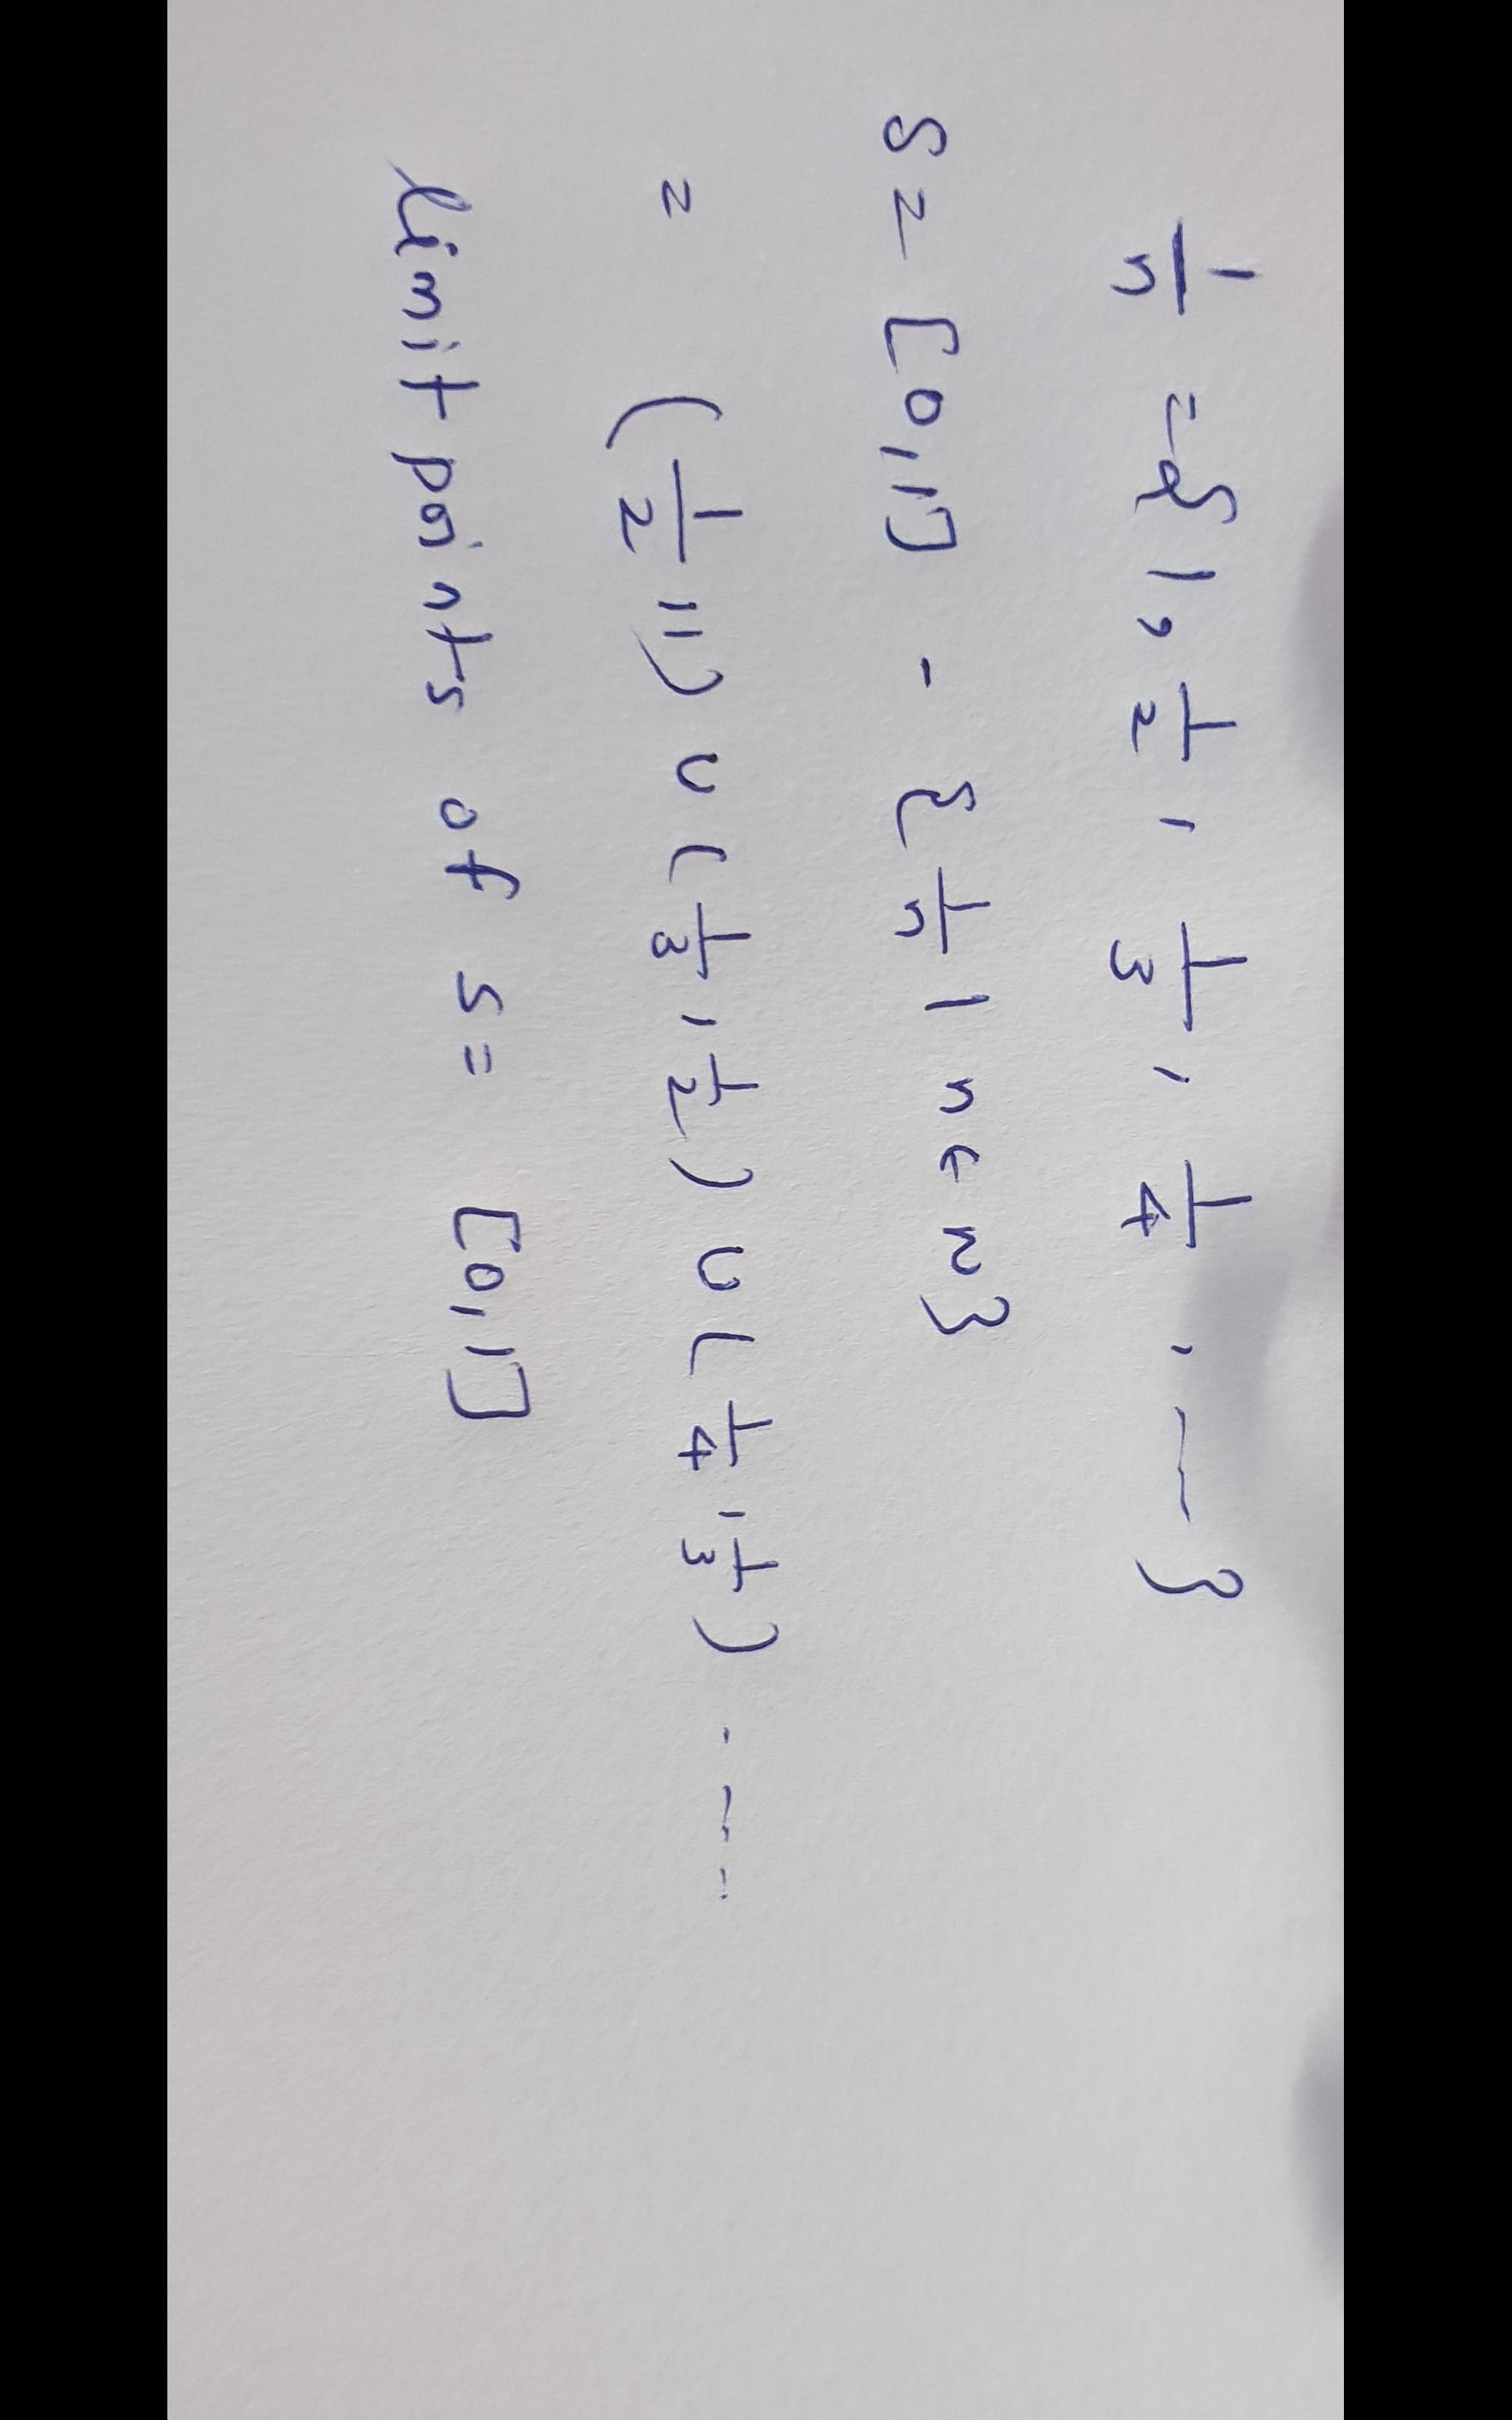 1/n = {1, 1/2, 1/3, 1/4, ---}
S = [0,1] - {1/n | n ∈ N}
= (1/2, 1) ∪ (1/3, 1/2) ∪ (1/4, 1/3) ----
limit points of S = [0,1]